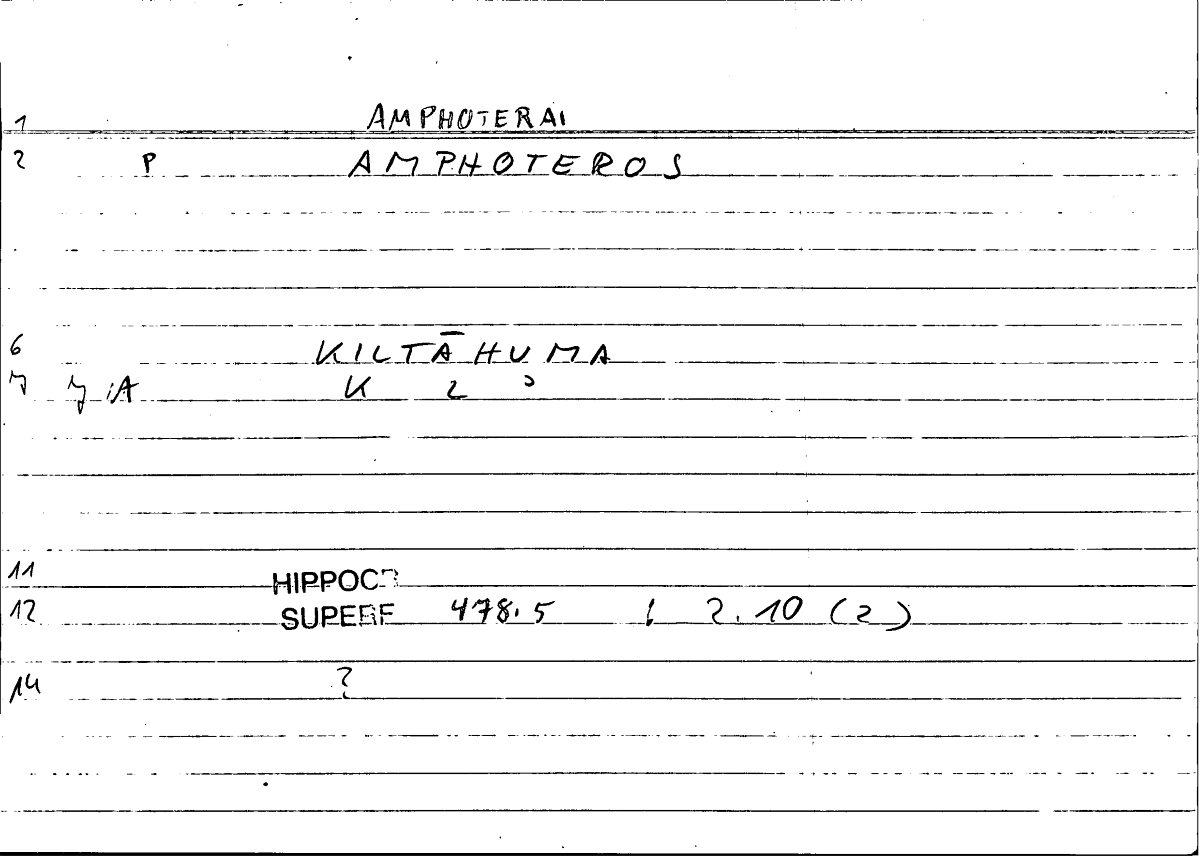 1 AMPHOTERAI
2 P AMPHOTEROS
6 KILTĀHUMA
7 A K 2
11 HIPPOCR
12 SUPERF 478.5 ; 2.10 (2)
14 ?